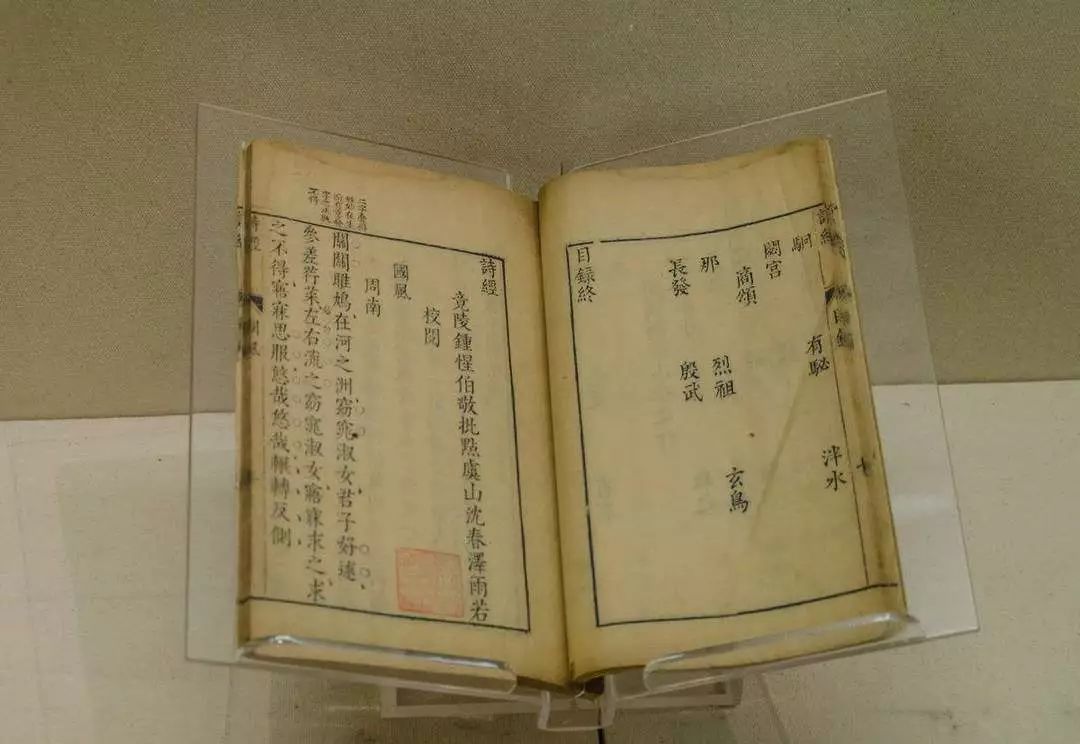 詩經
目錄
駉 有駜 泮水
閟宮
商頌
那 烈祖 玄鳥
長發 殷武
目錄終
詩經
竟陵鍾惺伯敬批點虞山沈春澤雨若
校閱
國風
周南
關關雎鳩、在河之洲、窈窕淑女、君子好逑、
參差荇菜、左右流之、窈窕淑女、寤寐求之、求
之不得、寤寐思服、悠哉悠哉、輾轉反側
詩經
國風